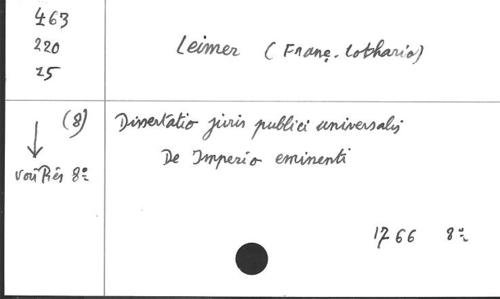 463
220
15
Leimer (Franç. Lothario)
(8) Dissertatio juris publici universalis
De Imperio eminenti
voir Rés 8º
1766 8º